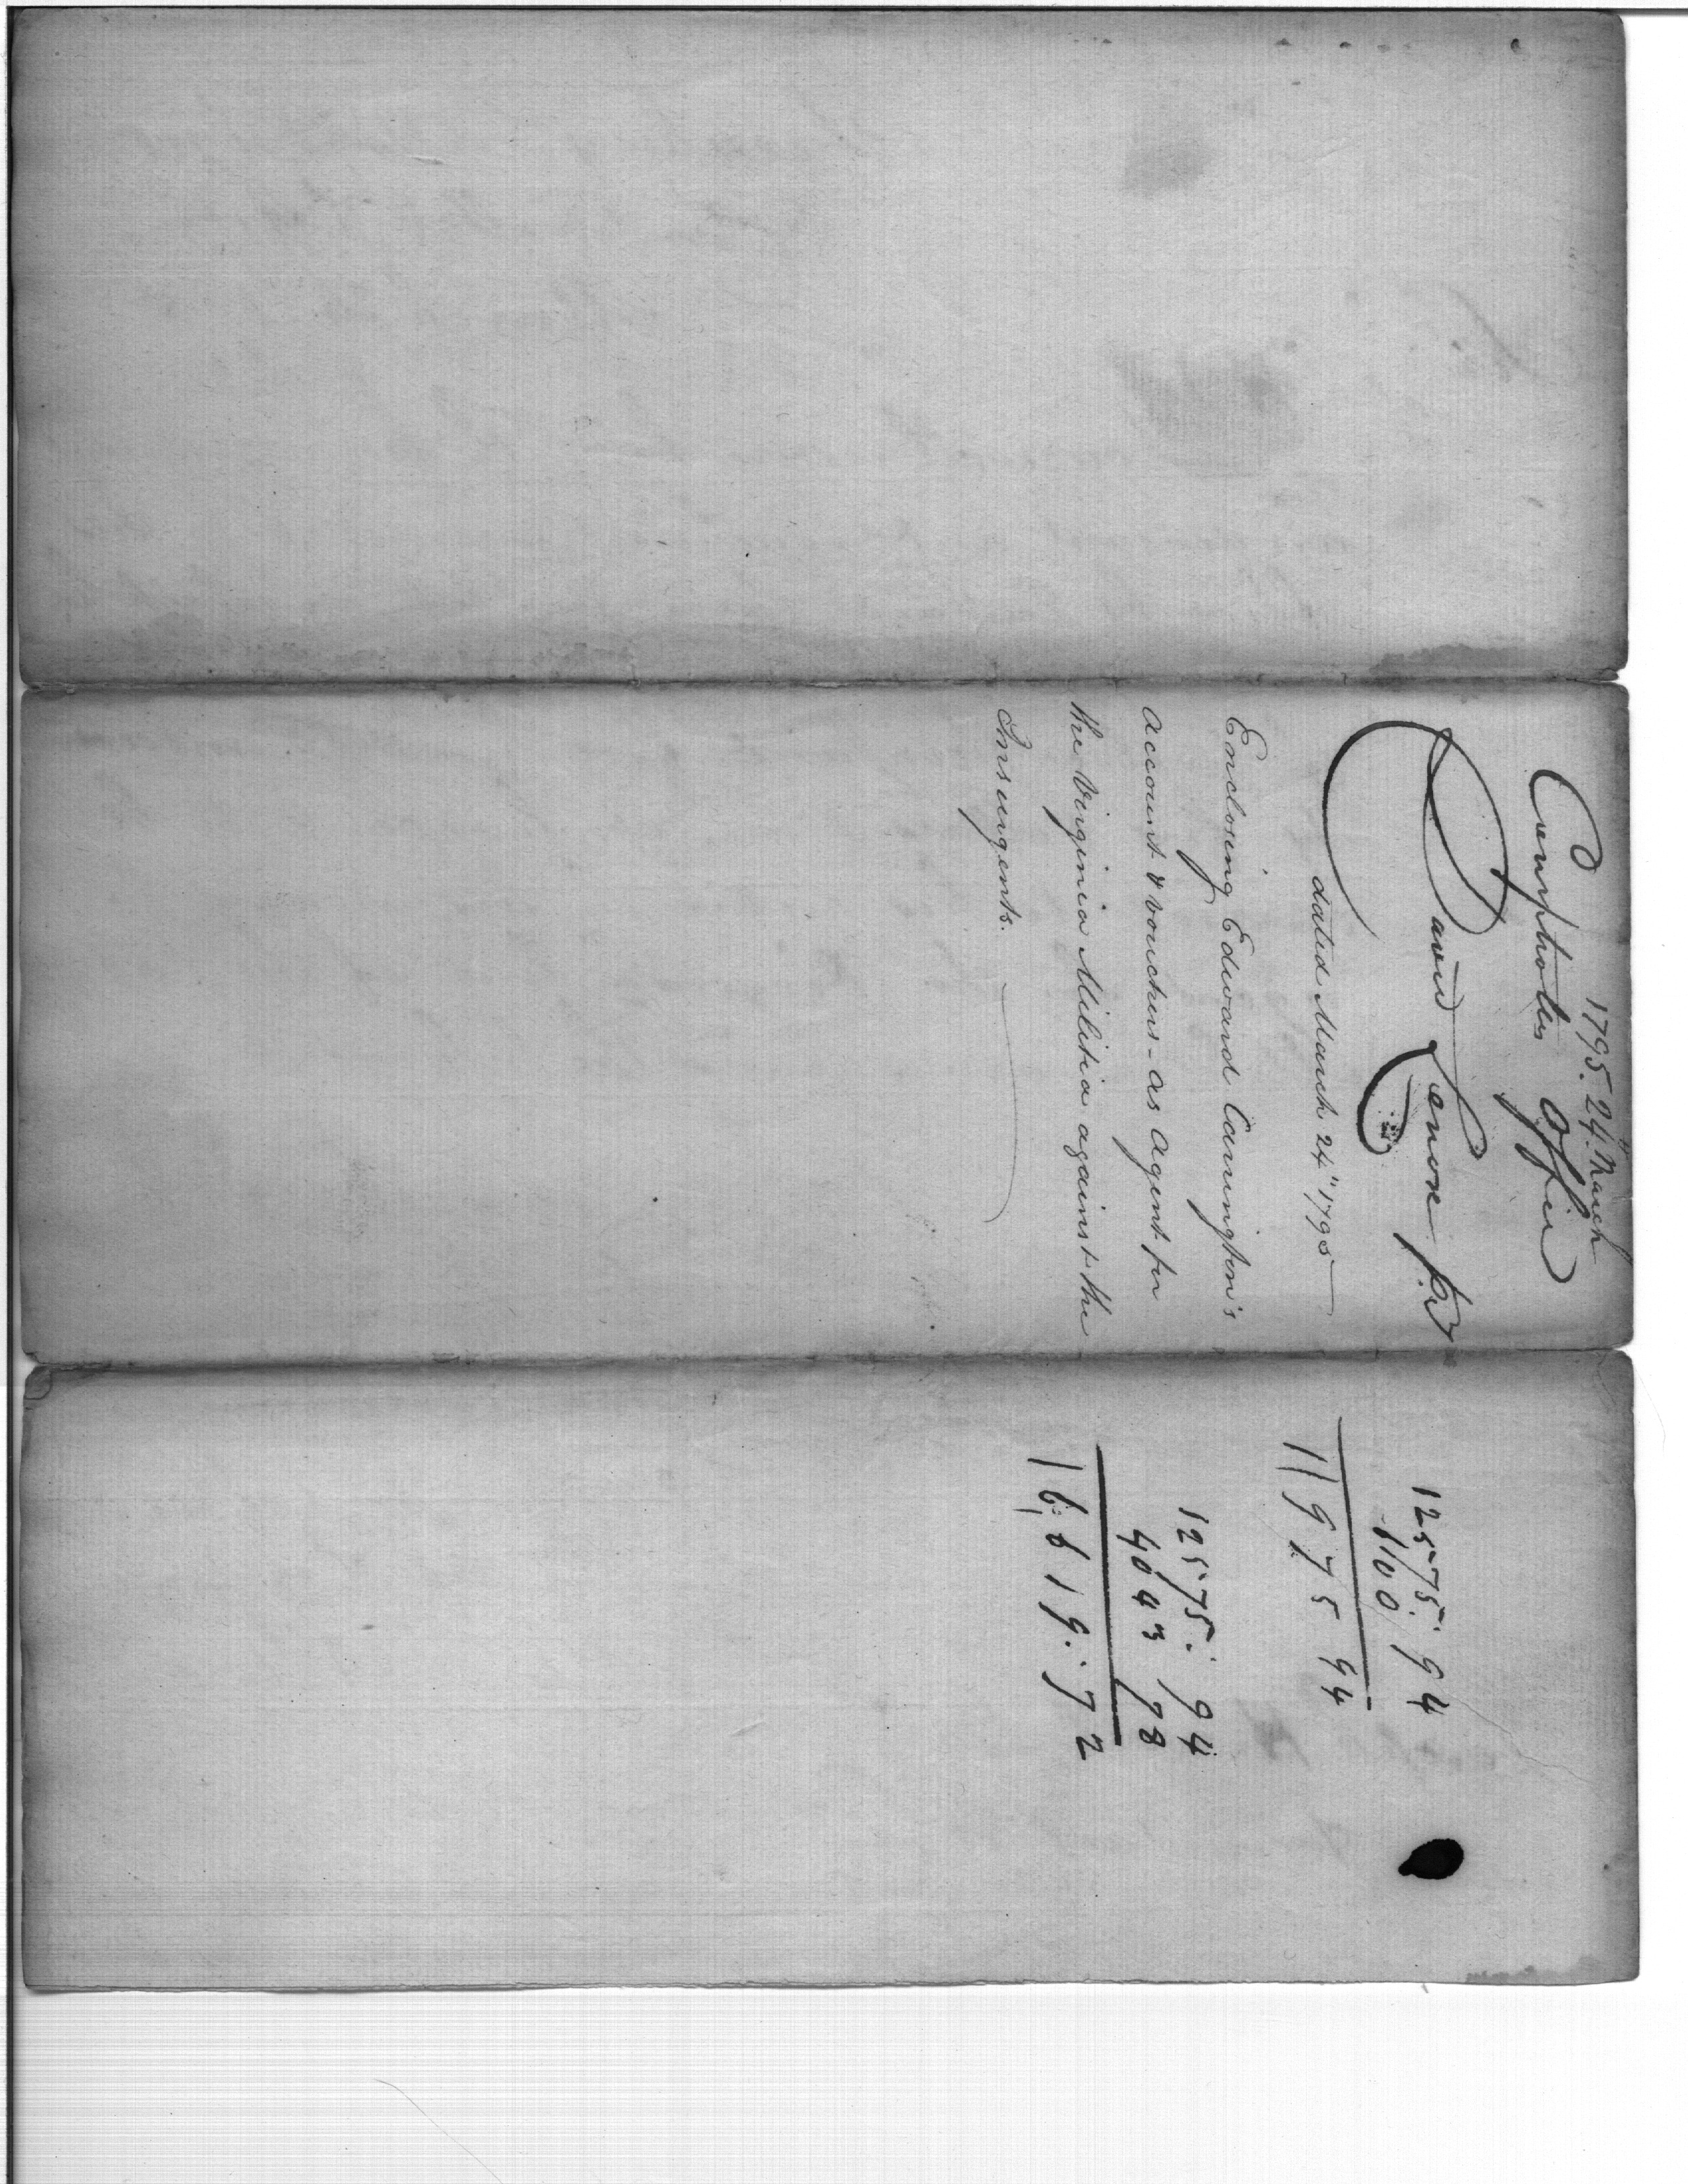 1795. 24" March
Comptroller Office
David Lenox
dated March 24" 1795
Enclosing Edward Carrington's
account & vouchers - as agent for
the Virginia Militia against the
Insurgents.
12575. 94
1100
11975 94
12575. 94
4043 78
16619. 72